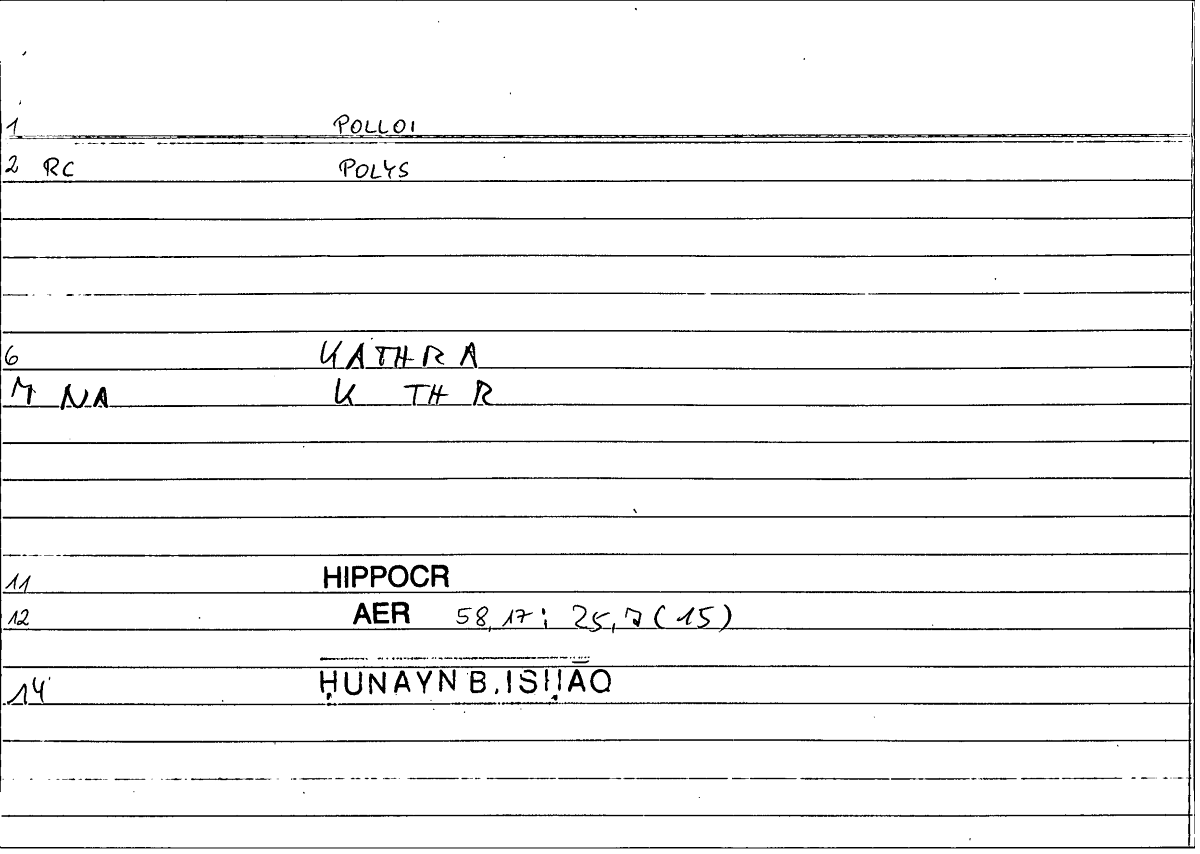 1 POLLOI
2 RC POLYS
6 KATHRA
7 NA K TH R
11 HIPPOCR
12 AER 58,17; 25,7 (15)
14 ḤUNAYN B. ISḤĀQ